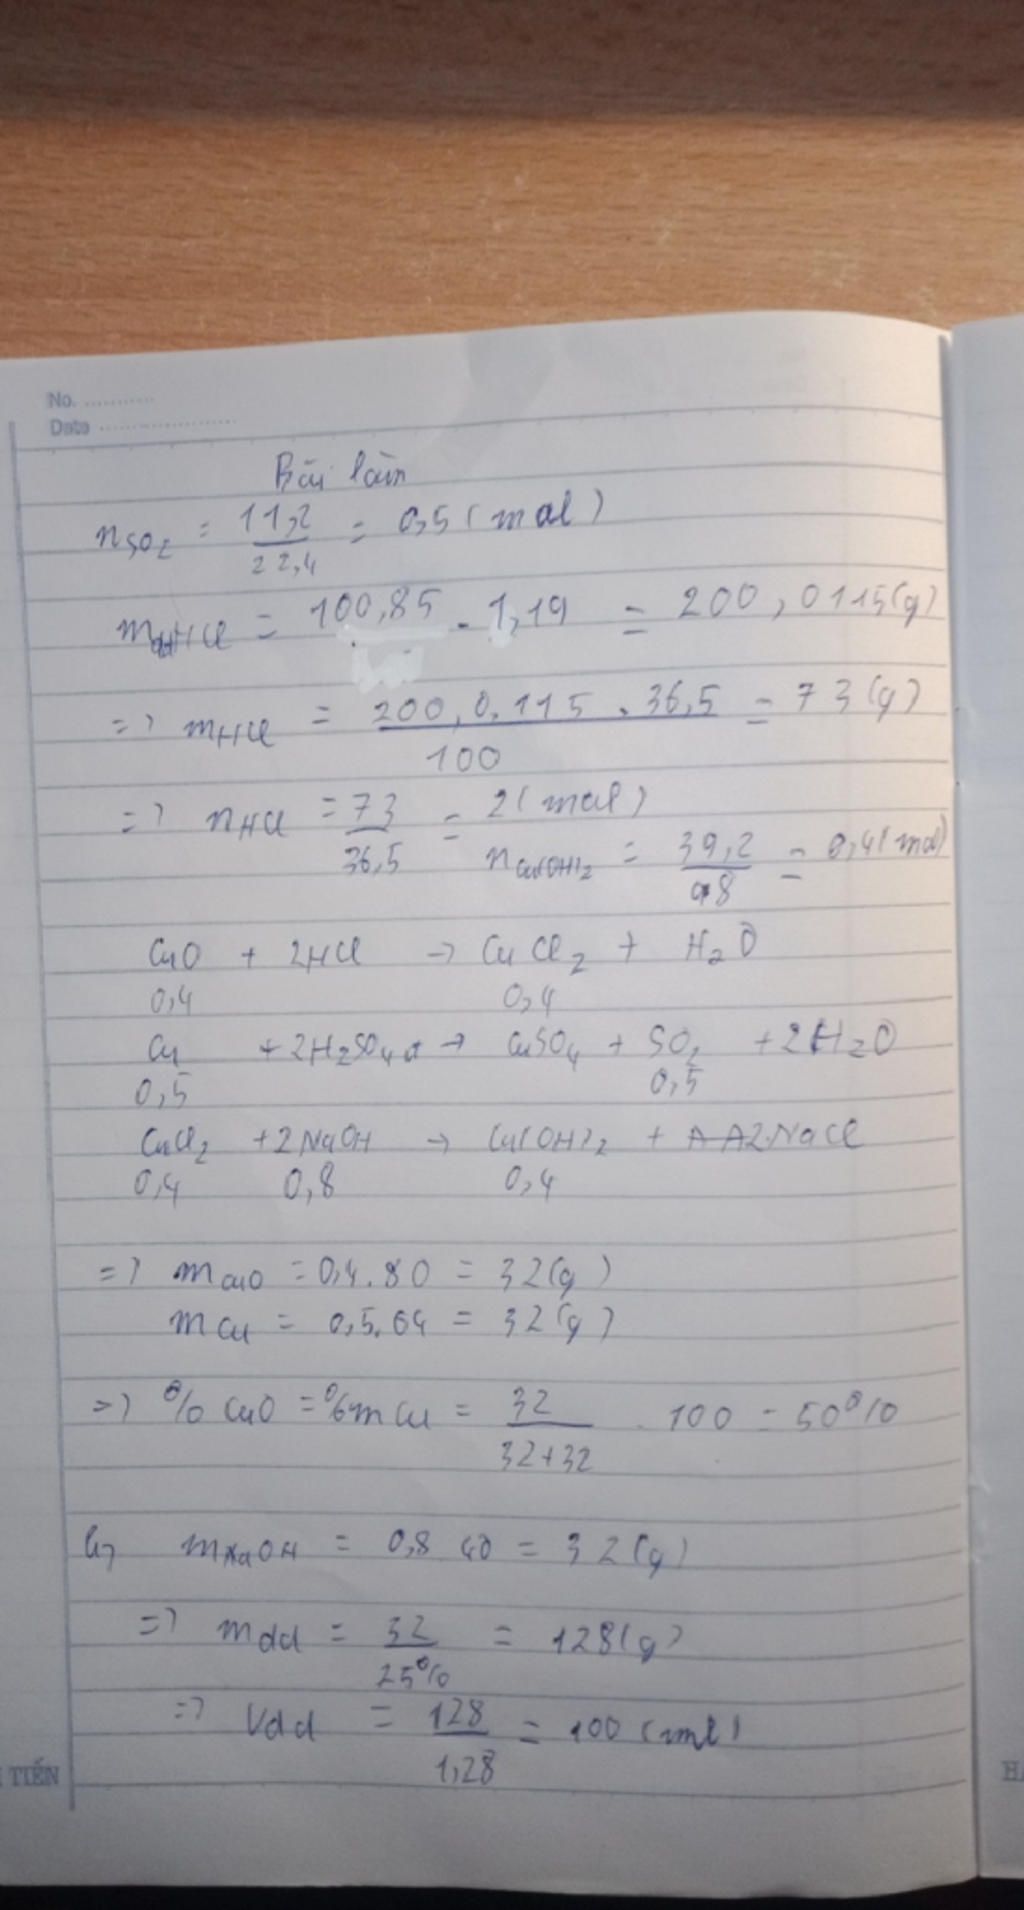 No. ............
Date .....................
Bài làm
nSO2 = 11,2/22,4 = 0,5 (mol)
mddHCl = 100,85 . 1,19 = 200,0115(g)
=> mHCl = 200,0.115 . 36,5/100 = 73(g)
=> nHCl = 73/36,5 = 2(mol)
nCu(OH)2 = 39,2/98 = 0,4(mol)
CuO + 2HCl -> CuCl2 + H2O
0,4 0,4
Cu + 2H2SO4đ -> CuSO4 + SO2 + 2H2O
0,5 0,5
CuCl2 + 2NaOH -> Cu(OH)2 + 2NaCl
0,4 0,8 0,4
=> mCuO = 0,4.80 = 32(g)
mCu = 0,5.64 = 32(g)
=> % CuO = %mCu = 32/32+32 . 100 = 50%
b, mNaOH = 0,8 40 = 32(g)
=> mdd = 32/25% = 128(g)
=> Vdd = 128/1,28 = 100 (ml)
TIẾN